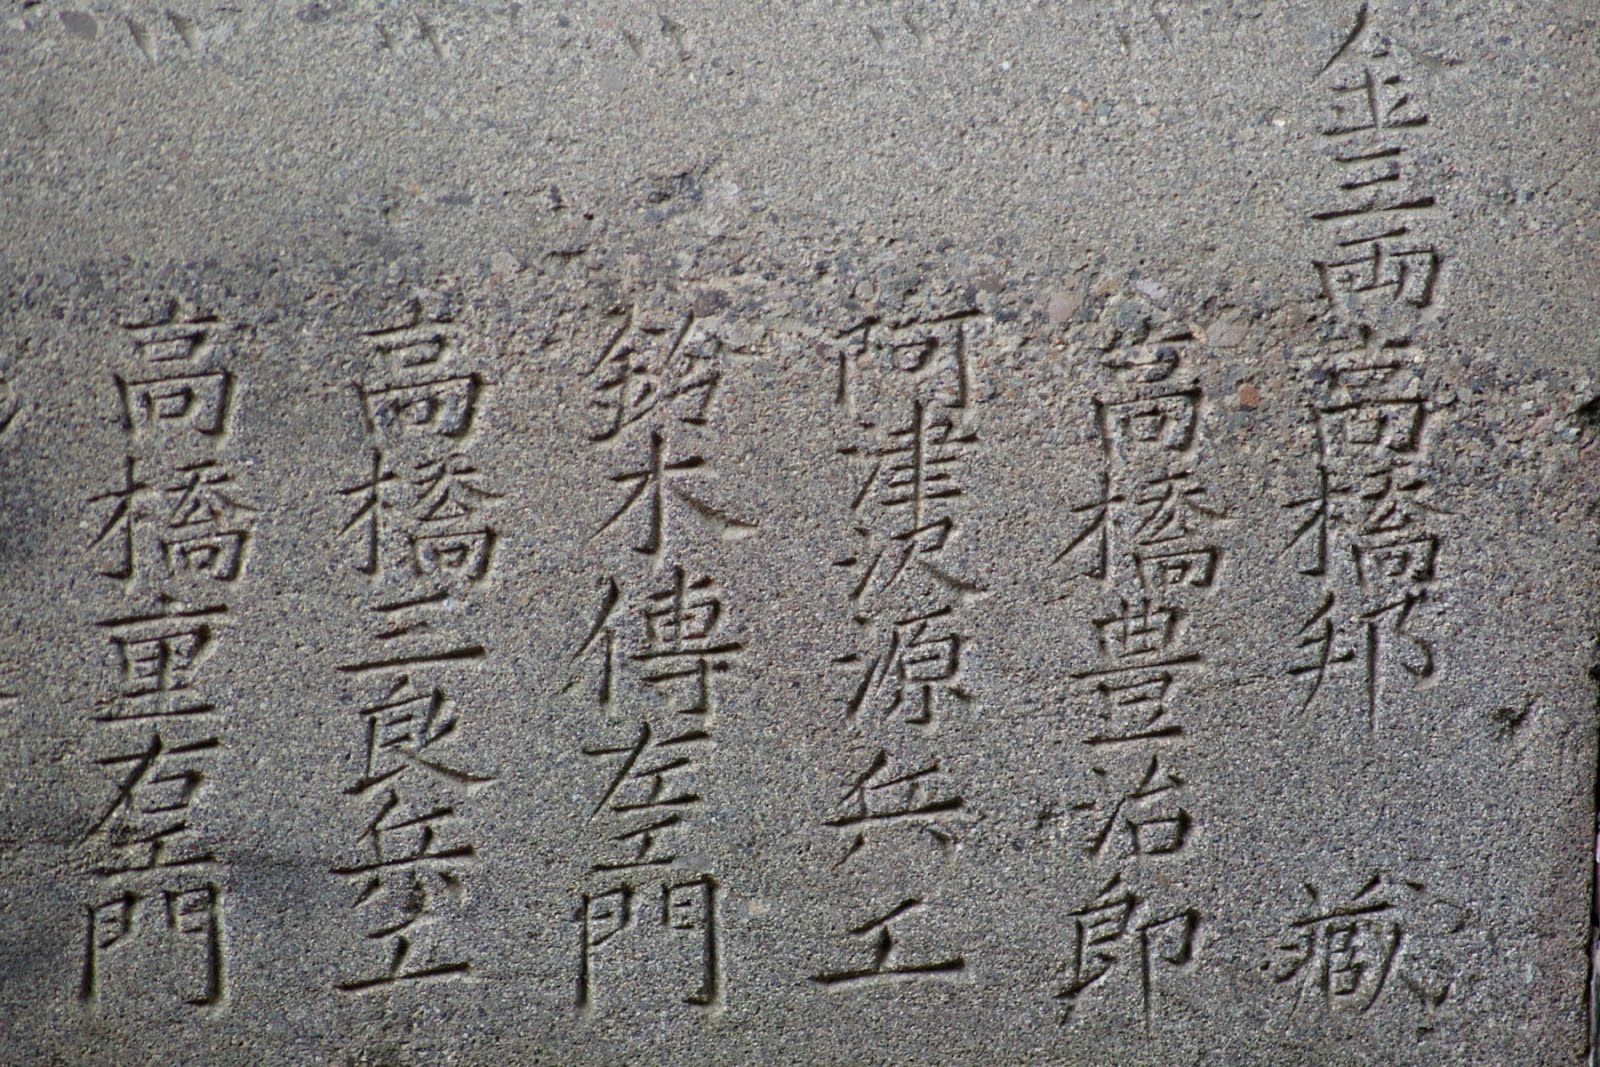 金三両高橋邦蔵
〃高橋豊治郎
〃阿津次源兵エ
〃鈴木傳左エ門
〃高橋三良兵エ
〃高橋重右エ門